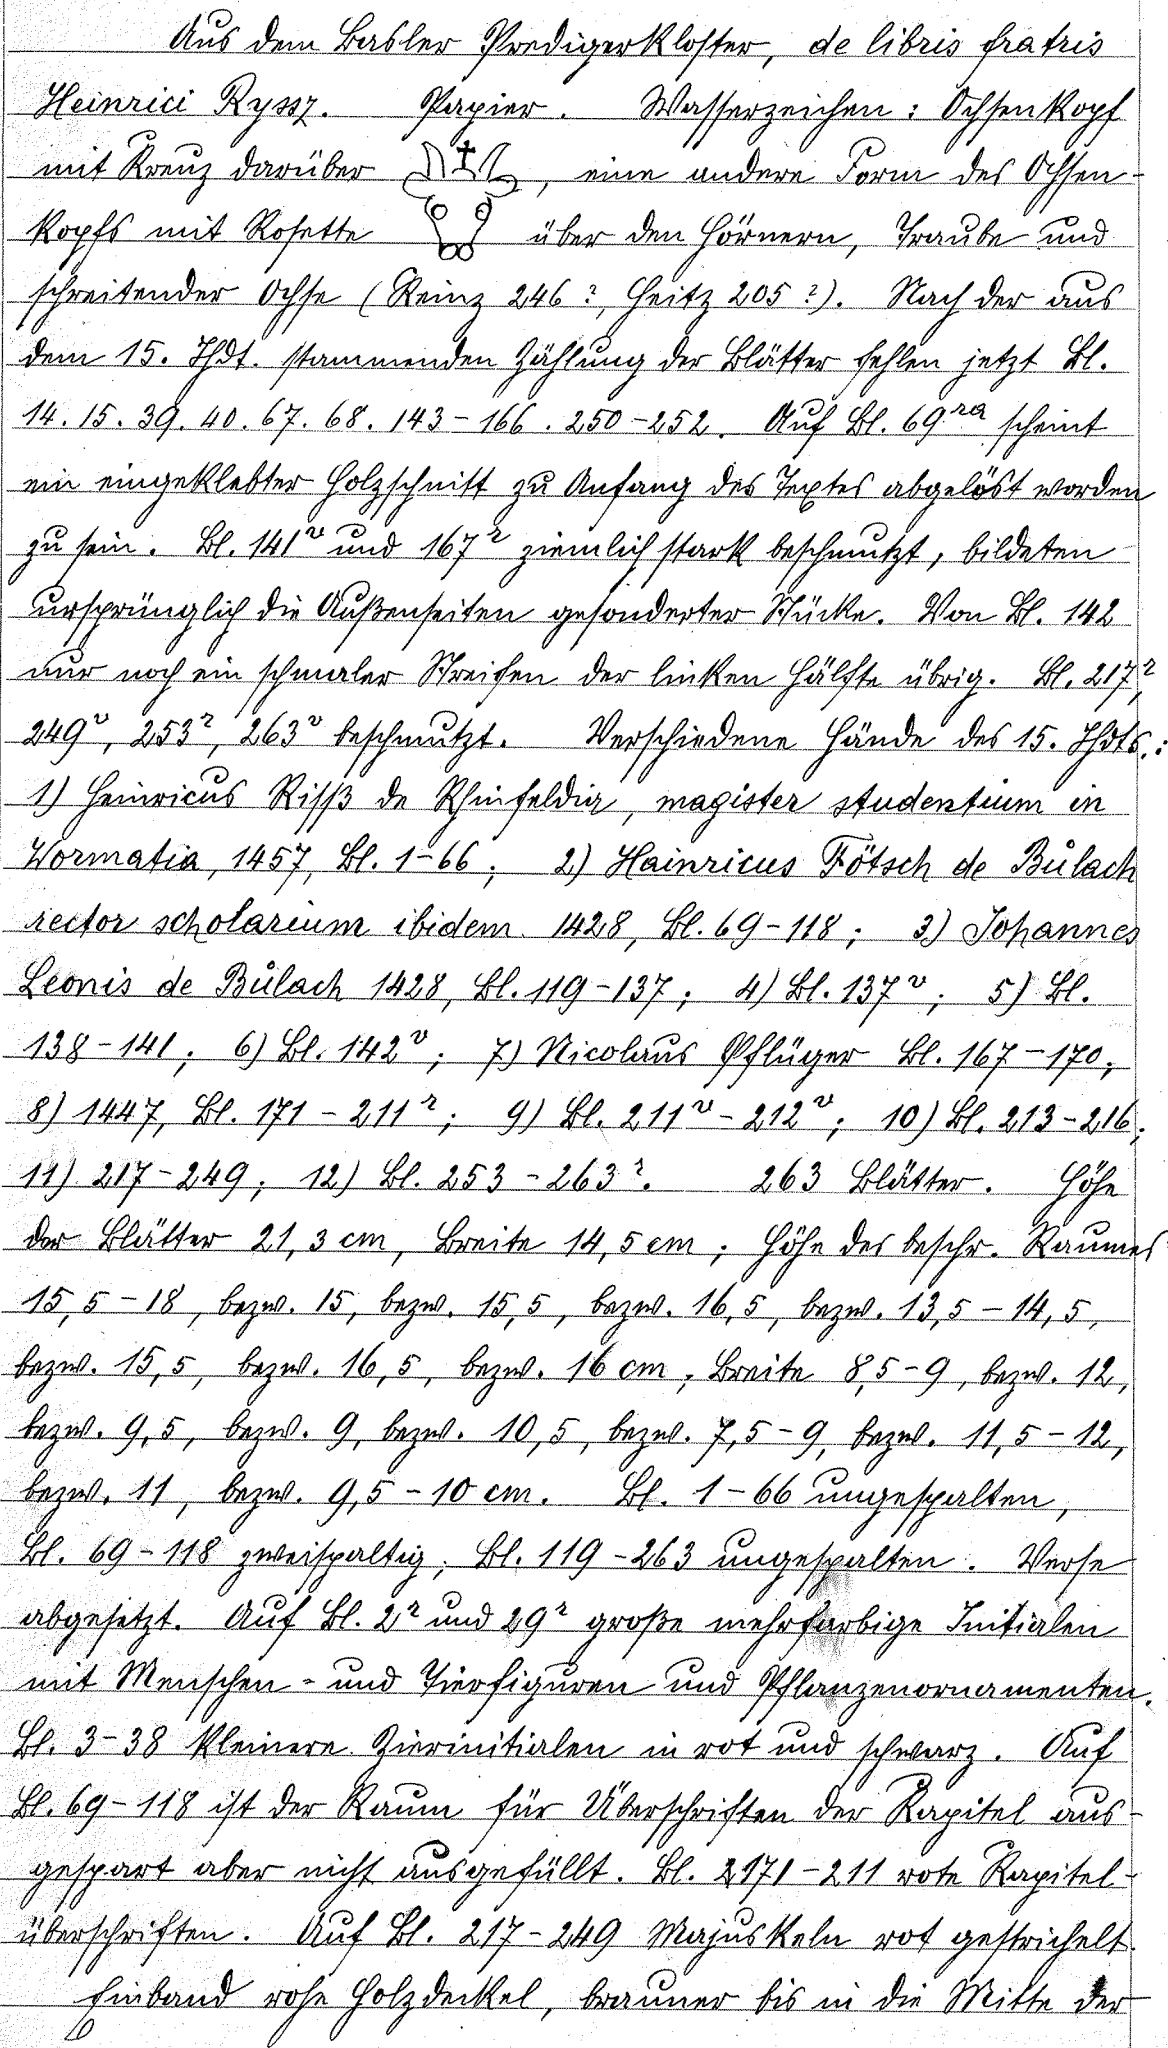 Aus dem Basler Predigerkloster, de libris fratris
Heinrici Ryssz. Papier. Wasserzeichen: Ochsenkopf
mit Kreuz darüber , eine andere Form des Ochsen-
kopfs mit Rosette über den Hörnern, Traube und
schreitender Ochse (Keinz 246?, Heitz 205?). Nach der aus
dem 15. Jhdt. stammenden Zählung der Blätter fehlen jetzt Bl.
14. 15. 39. 40. 67. 68. 143-166. 250-252. Auf Bl. 69ra scheint
ein eingeklebter Holzschnitt zu Anfang des Textes abgelöst worden
zu sein. Bl. 141v und 167r ziemlich stark beschmutzt, bildeten
ursprünglich die Außenseiten gesonderter Stücke. Von Bl. 142
nur noch ein schmaler Streifen der linken Hälfte übrig. Bl. 217r,
249v, 253r, 263v beschmutzt. Verschiedene Hände des 15. Jhdts.:
1) Heinricus Rissß de Rhinfeldia, magister studentium in
Wormatia, 1457, Bl. 1-66; 2) Hainricus Fötsch de Bůlach
rector scholarium ibidem 1428, Bl. 69-118; 3) Johannes
Leonis de Bůlach 1428, Bl. 119-137; 4) Bl. 137v; 5) Bl.
138-141; 6) Bl. 142v; 7) Nicolaus Pflüger Bl. 167-170;
8) 1447, Bl. 171-211r; 9) Bl. 211v-212v; 10) Bl. 213-216;
11) 217-249; 12) Bl. 253-263r. 263 Blätter. Höhe
der Blätter 21,3 cm, Breite 14,5 cm; Höhe des beschr. Raumes
15,5-18, bezw. 15, bezw. 15,5, bezw. 16,5, bezw. 13,5-14,5,
bezw. 15,5, bezw. 16,5, bezw. 16 cm, Breite 8,5-9, bezw. 12,
bezw. 9,5, bezw. 9, bezw. 10,5, bezw. 7,5-9, bezw. 11,5-12,
bezw. 11, bezw. 9,5-10 cm. Bl. 1-66 ungespalten,
Bl. 69-118 zweispaltig, Bl. 119-263 ungespalten. Verse
abgesetzt. Auf Bl. 2r und 29r große mehrfarbige Initialen
mit Menschen- und Tierfiguren und Pflanzenornamenten.
Bl. 3-38 kleinere Zierinitialen in rot und schwarz. Auf
Bl. 69-118 ist der Raum für Überschriften der Kapitel aus-
gespart aber nicht ausgefüllt. Bl. 2171-211 rote Kapitel-
überschriften. Auf Bl. 217-249 Majuskeln rot gestrichelt.
Einband rohe Holzdeckel, brauner bis in die Mitte der